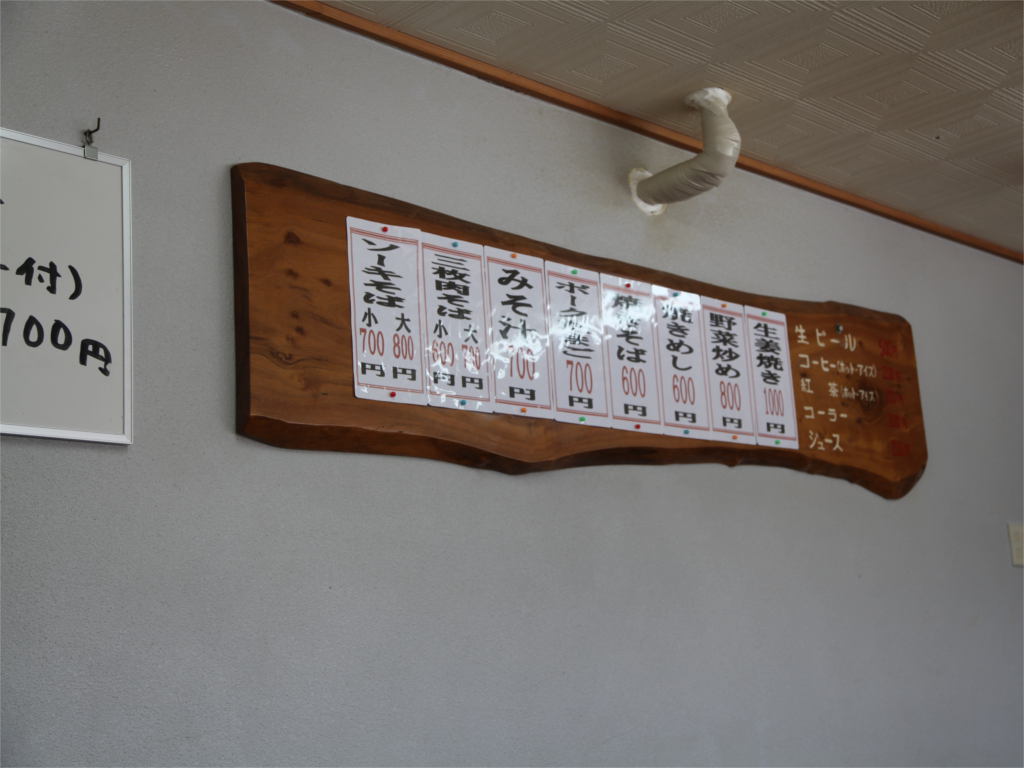 付)
700円
ソーキそば
小 大
700 800
円 円
三枚肉そば
小 大
600 700
円 円
みそ汁
700
円
ポーク
700
円
焼きそば
600
円
焼きめし
600
円
野菜炒め
800
円
生姜焼き
1000
円
生ビール
コーヒー(ホット・アイス)
紅 茶(ホット・アイス)
コーラー
ジュース